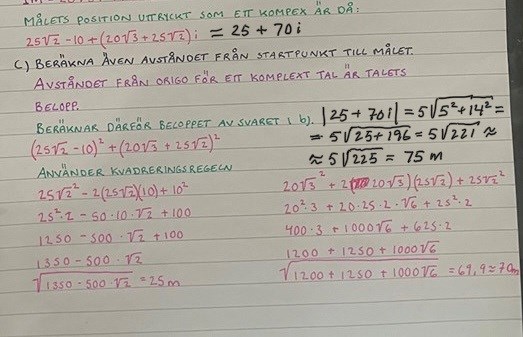 MÅLETS POSITION UTTRYCKT SOM ETT KOMPEX ÄR DÅ:
25√2 - 10 + (20√3 + 25√2) i = 25 + 70 i
C) BERÄKNA ÄVEN AVSTÅNDET FRÅN STARTPUNKT TILL MÅLET.
AVSTÅNDET FRÅN ORIGO FÖR ETT KOMPLEXT TAL ÄR TALETS
BELOPP.
BERÄKNAR DÄRFÖR BELOPPET AV SVARET I b). |25 + 70i| = 5√5² + 14² =
(25√2 - 10)² + (20√3 + 25√2)² = 5√25 + 196 = 5√221 ≈
≈ 5√225 = 75 m
ANVÄNDER KVADRERINGSREGELN
25√2² - 2(25√2)(10) + 10²
25² · 2 - 50 · 10 · √2 + 100
1250 - 500 · √2 + 100
1350 - 500 · √2
√1350 - 500 · √2 = 25m
20√3² + 2(20√3)(25√2) + 25√2²
20² · 3 + 20 · 25 · 2 · √6 + 25² · 2
400 · 3 + 1000√6 + 625 · 2
1200 + 1250 + 1000√6
√1200 + 1250 + 1000√6 = 69,9 ≈ 70m